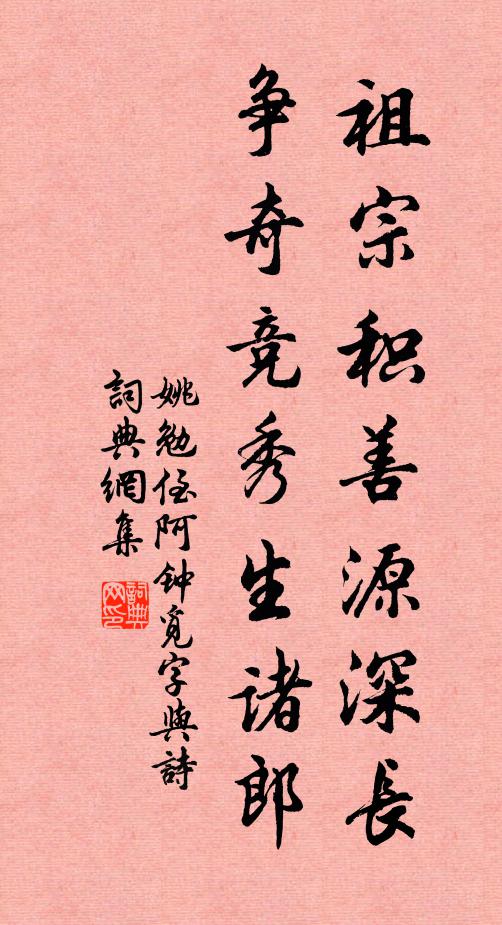 祖宗积善源深長
争奇竞秀生诸郎
姚勉侄阿钟觅字與詩
詞典網集
詞典网印